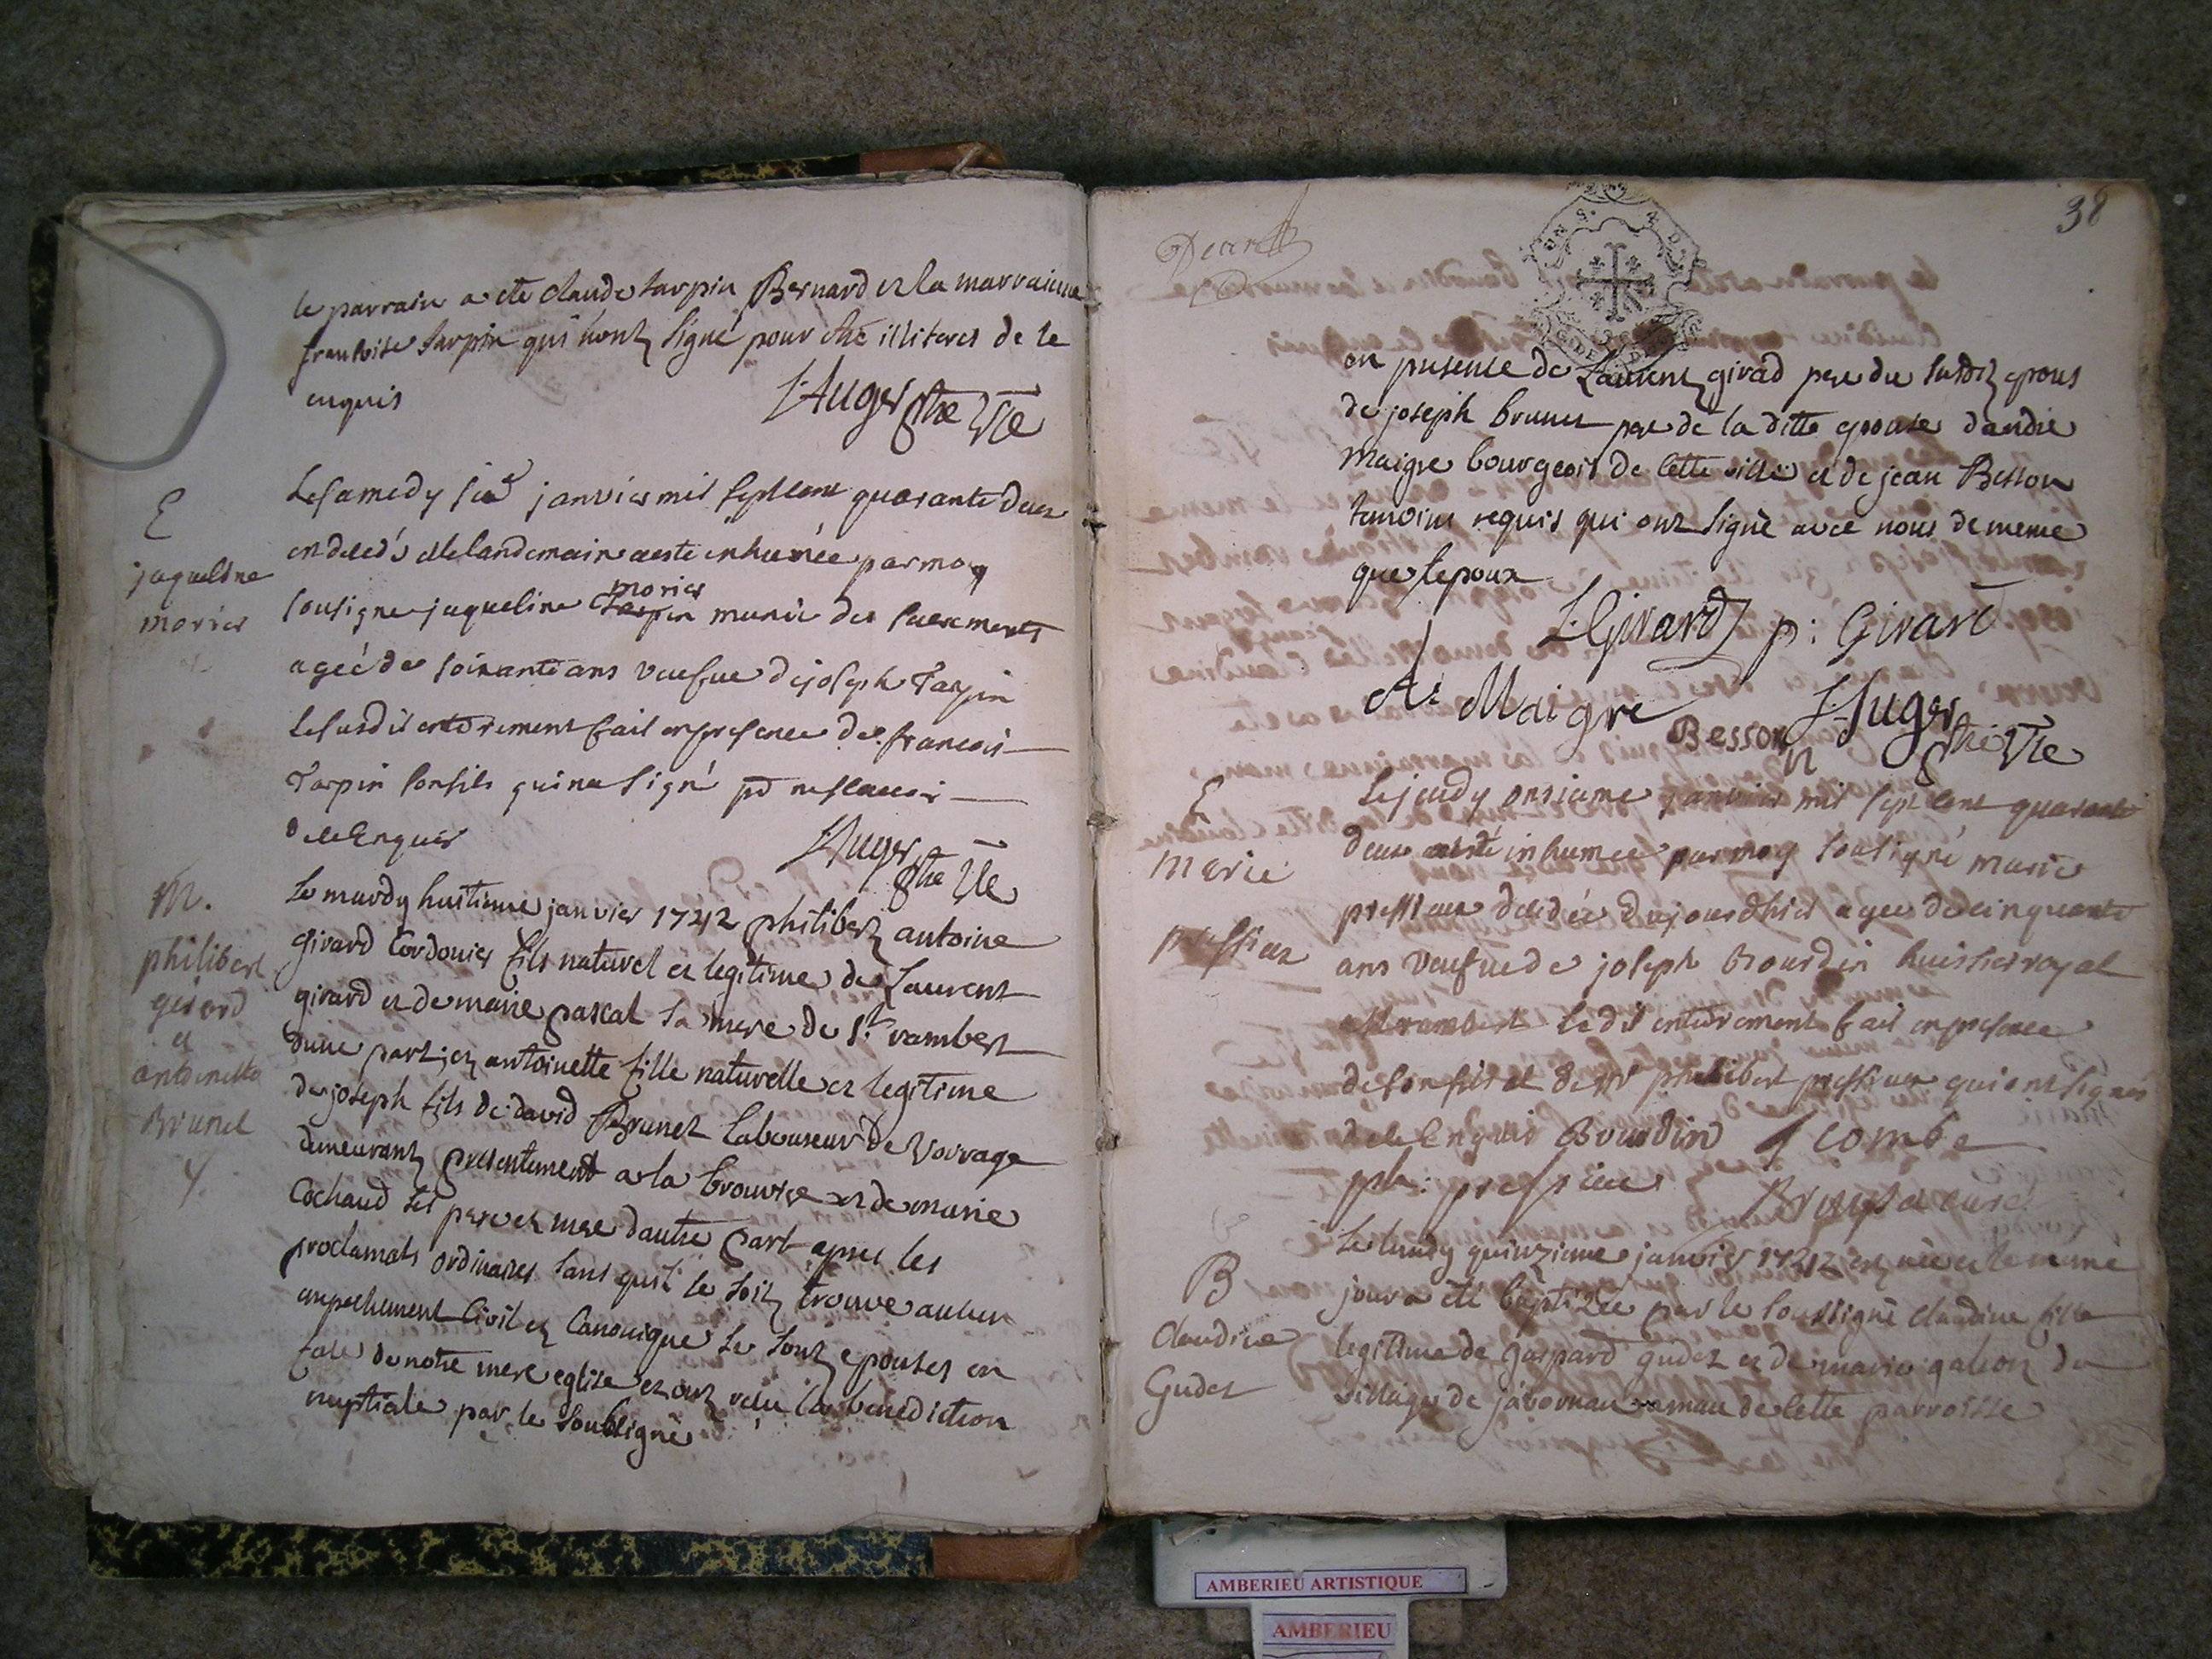 le parrain a ete claude tarpin Bernard et la marraine
francoise tarpin qui n'ont signé pour etre illiteres de ce
enquis
J: Auger ptre vre
E
jaqueline
morier
Le samedy janvier mil sept cent quarante deux
est decedé et le landemain a esté inhumée par moy
sousigne jaqueline Tarpin morier munie des sacrements
ageé de soixante ans veufue de joseph Tarpin
Le susdit enterement fait en presence de francois
Tarpin son fils qui na signé pr ne scavoir
de ce Enquis
J: Auger ptre vre
M.
philibert
gérard
et
antoinette
Brunet
Le mardy huitieme janvier 1742 philibert antoine
girard Cordonier fils naturel et legitime de Laurent
girard et de marie pascal sa mere de St rambert
d'une part; et antoinette fille naturelle et legitime
de joseph fils de david Brunet laboureur de Vorage
demeurant presentement a la brouire et de marie
Cochaud ses pere et mere dautre part apres les
proclamats ordinaires sans quil se soit trouve aucun
empechement Civil et Canonique se sont epouses en
face de notre mere eglise et ont recu la benediction
nuptiale par le soubsigné
38
en presence de Laurent girad pere du susdit epous
de joseph brunet pere de la ditte epouse dandre
maigre bourgeois de cette ville et de jean Besson
temoins requis qui ont signé avec nous de meme
que lepoux
L: Girard p: Girard
A: Maigre
Besson J: Auger
ptre vre
E
Marie
pressieux
Le jeudy onsieme janvier mil sept cent quarante
deux a esté inhumee par moy sousigné marie
pressieux decedée dujourdhier agee de cinquante
ans veufue de joseph Bourdin huissier royal
a St rambert le dit enterement fait en presence
de son fils et de mr philibert pressieux qui ont signés
de ce Enquis Bourdin combe
ph: pressieux
curé
B
Claudine
Gudet
Le lundy quinzieme janvier 1742 est née et le même
jour a été baptizée par le soussigné claudine fille
legitime de gaspard gudet et de marie galion du
village de javornau amau de cette parroisse
AMBERIEU ARTISTIQUE
AMBERIEU